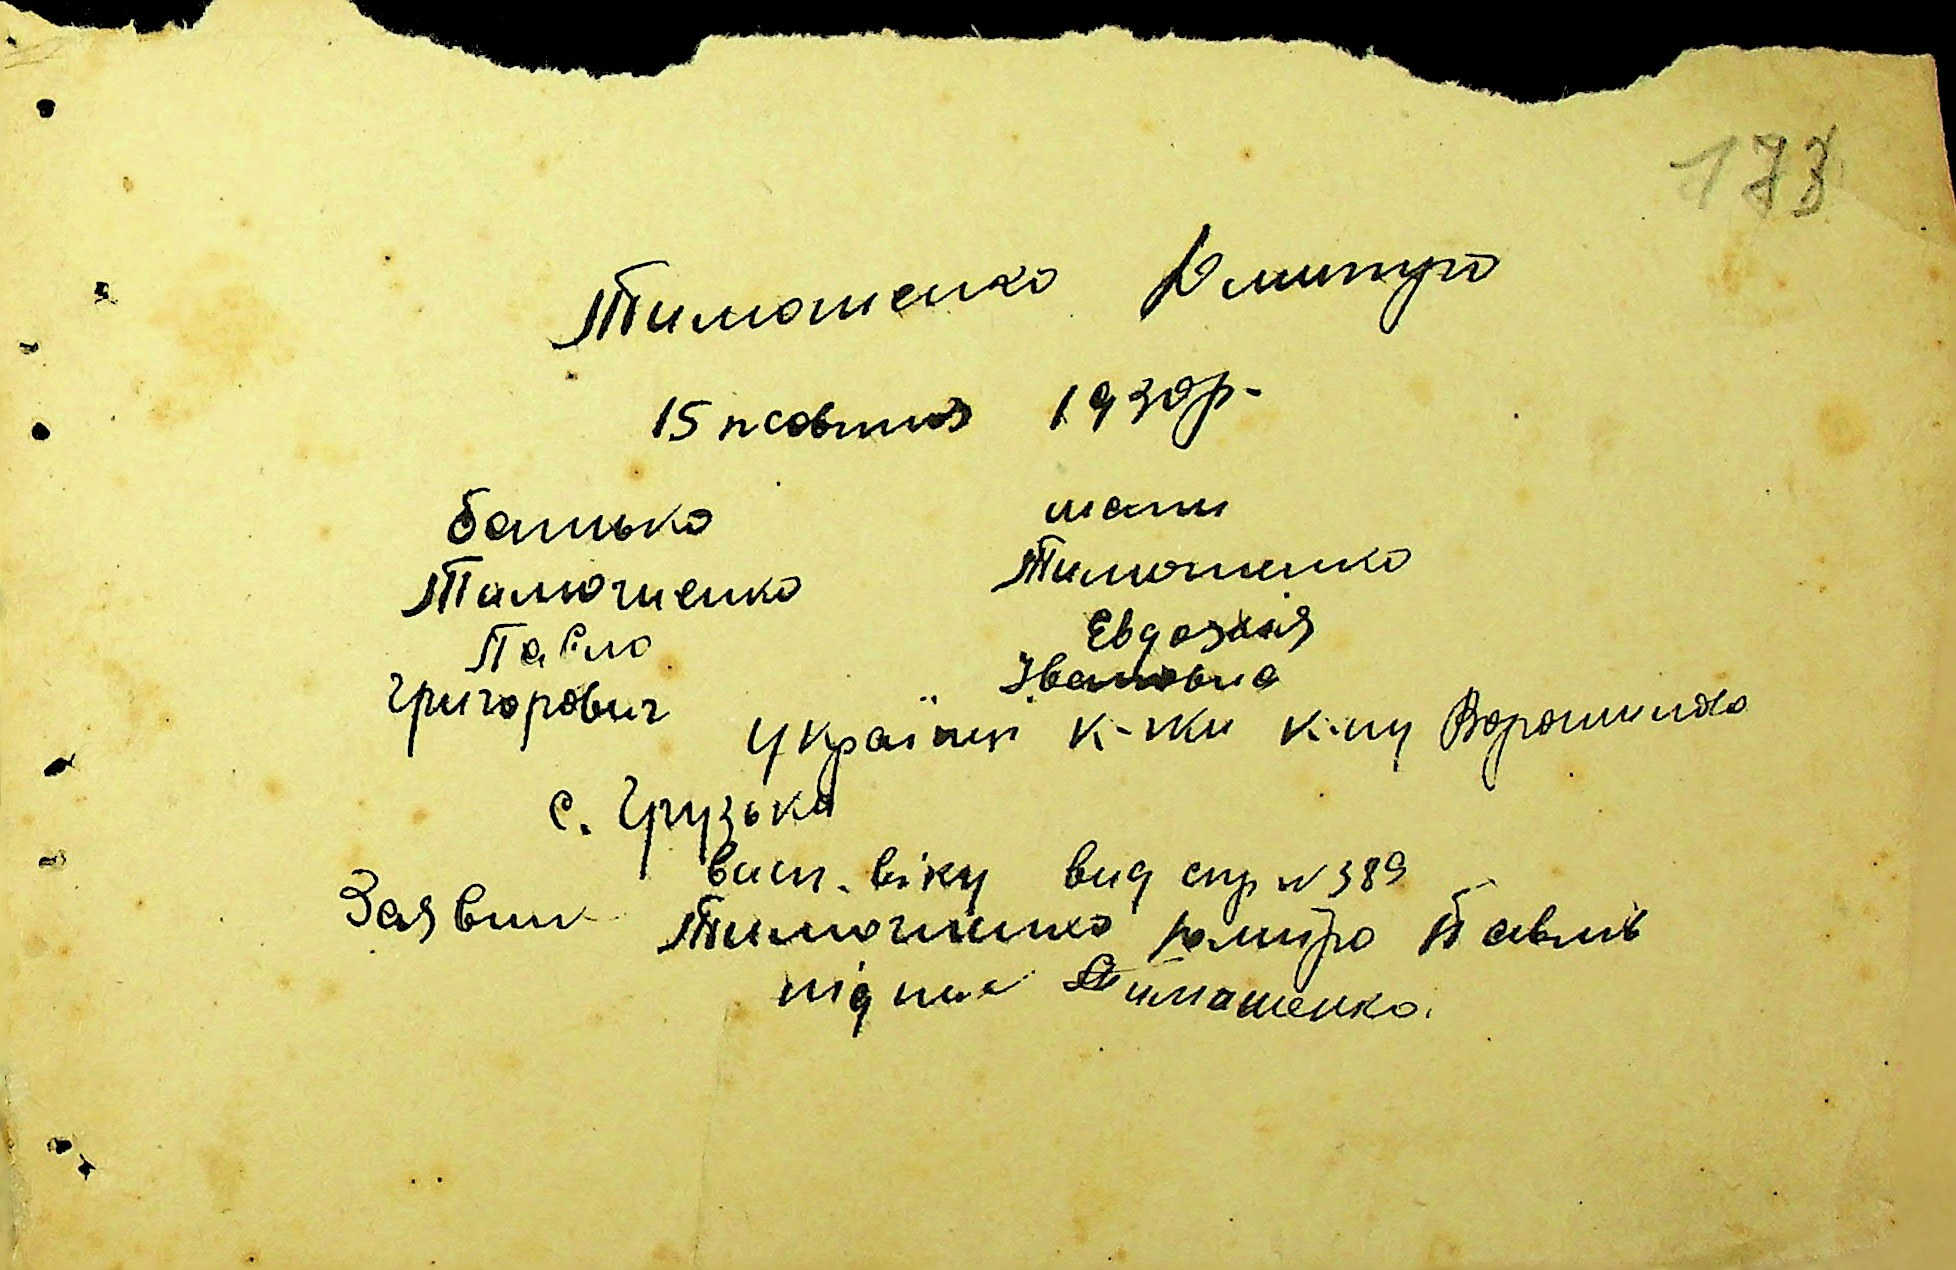 173
Тимошенко Дмитро
15 жовтня 1930р.
батько мати
Тимошенко Тимошенко
Павло Евдокія
Григорович Івановна
українці к-ки к-пу Ворошилова
с. Грузька
висн. віку вид спр N 389
Заявник Тимошенко Дмитро Павлів
підпис Тимошенко.